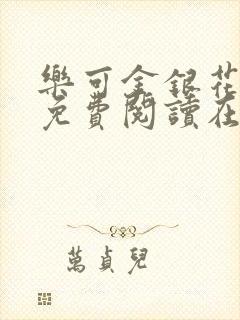 樂可金銀花
免費閱讀在
萬貞兒